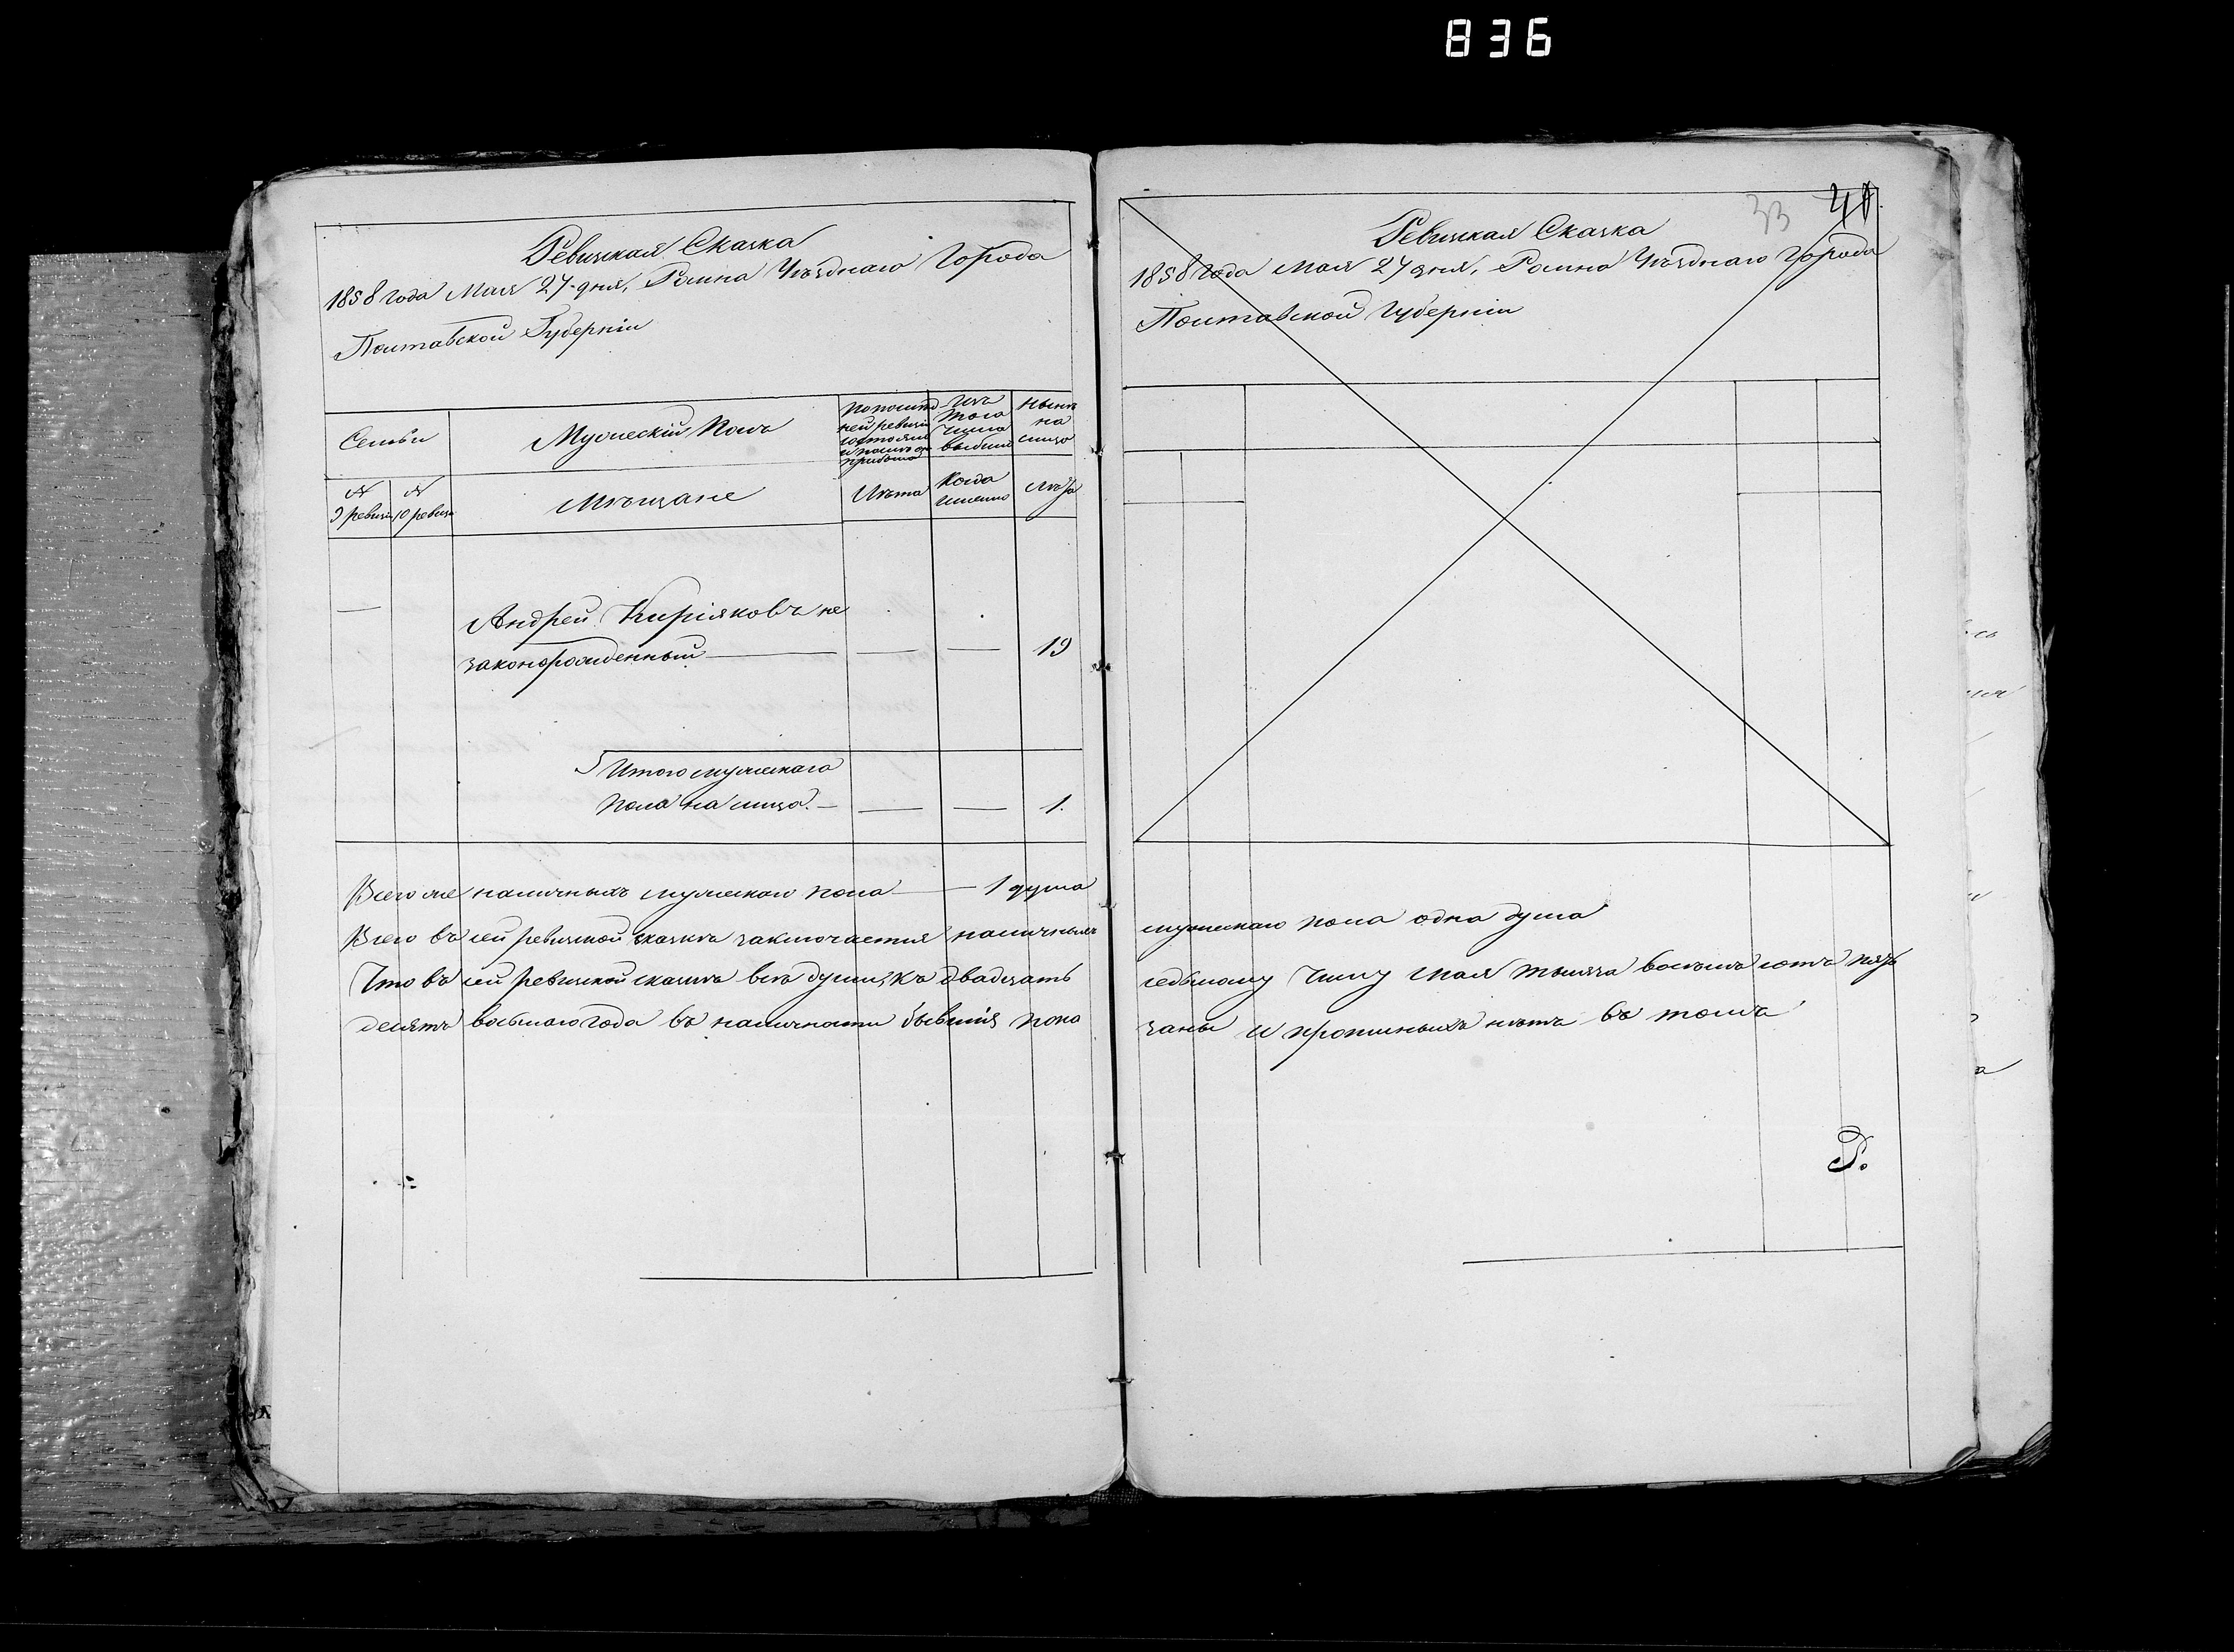 836
Ревизская Сказка
1858 года Мая 27 дня, Ромна Уѣзднаго Города
Полтавской Губерніи
Семьи
Мужескій Полъ
По послѣдней ревизіи состояло и послѣ того прибыло
Изъ того числа выбыло
Нынѣ на лицо
№ 9 ревизіи
№ 10 ревизіи
Мѣщане
Лѣта
Когда именно
Лѣта
Андрей Киріяковъ не
законорожденный — — — 19
Итого мужескаго
пола на лицо — — — 1.
Всего же наличныхъ мужескаго пола — 1 душа
Всего въ сей ревизской сказкѣ заключается наличныхъ
Что въ сей ревизской сказкѣ всѣ души, къ двадцать
десятъ восьмаго года въ наличности бывшія пока
33
41
Ревизская Сказка
1858 года Мая 27 дня, Ромна Уѣзднаго Города
Полтавской Губерніи
мужескаго пола одна душа
седьмому числу Мая тысяча восемьсотъ пять
заны и прописныхъ нѣтъ въ томъ
Р.